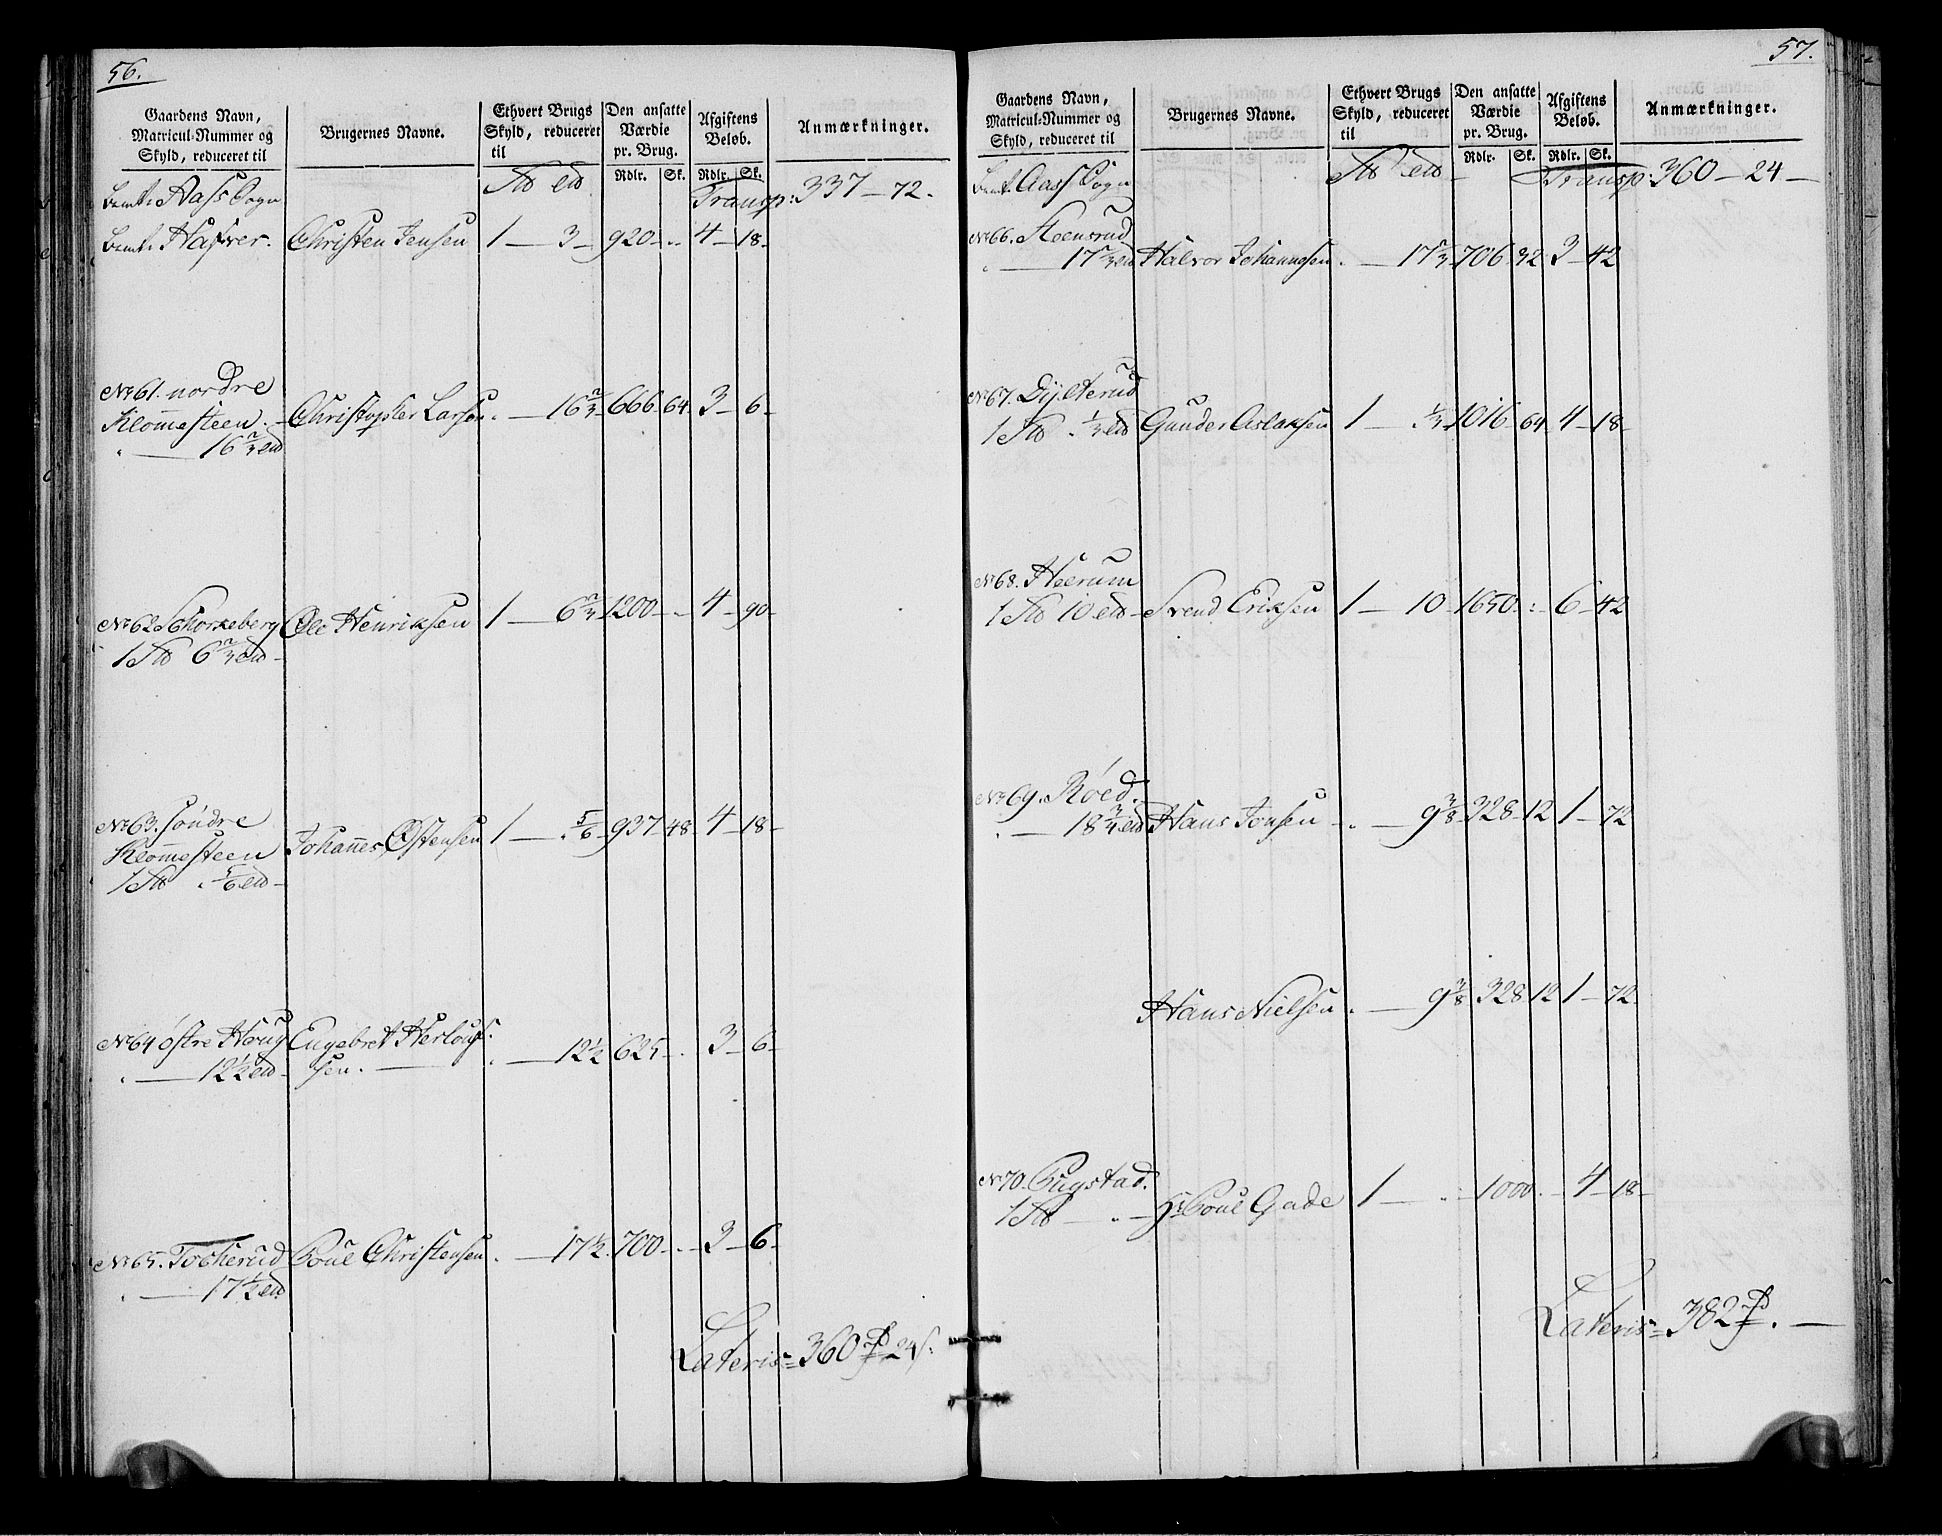 56.
Gaardens Navn, Matricul-Nummer og Skyld, reduceret til
Brugernes Navne.
Ethvert Brugs Skyld, reduceret til
Den ansatte Værdie pr. Brug.
Afgiftens Beløb.
Anmærkninger.
Rdlr. Sk. Rdlr. Sk.
Aass Sogn
Transp: 337 - 72.
Hasver. Christen Jensen 1 - 3 - 920 - .. 4 - 18 -
No 61. nordre
Klom̄esteen. Christopher Larsen . - 16 2/3 666. 64. 3 - 6 -
. - 16 2/3
No 62 Schorkeberg Ole Henriksen 1 - 6 2/3 1200 - .. 4 - 90 -
1 6 2/3
No 63. søndre
Klom̄esteen Johan̄es Østensen 1 - . 5/6 937 48 4 - 18 -
1 . 5/6
No 64 østre Houg Engebret Herlouf-
. - 12 1/2 sen. . - 12 1/2 625 - . 3 - 6 -
No 65. Tocherud Poul Christensen . - 17 1/2 700 - .. 3 - 6 -
. - 17 1/2
Lateris = 360 24
57.
Gaardens Navn, Matricul-Nummer og Skyld, reduceret til
Brugernes Navne.
Ethvert Brugs Skyld, reduceret til
Den ansatte Værdie pr. Brug.
Afgiftens Beløb.
Anmærkninger.
Rdlr. Sk. Rdlr. Sk.
Aass Sogn
Transp: 360 - 24 -
No 66. Steensrud
Halvor Johannesen . - 706 32 3 - 42
No 67. Dÿsterud
1 . 1/3 Gunder Aslaksen 1 - . 1/3 1016 64 4 - 18 -
No 68. Heerum
1 10 Svend Eriksen 1 - 10 1650 . : 6 - 42
No 69. Røed.
. - 18 3/4 Hans Jonsen . - 9 3/8 328 12 1 - 72
Hans Nielsen . - 9 3/8 328 12 1 - 72
No 70. Sugstad.
1 - . - Hr Poul Gade 1 - .. 1000 . 4 - 18 -
Lateris = 382 . -